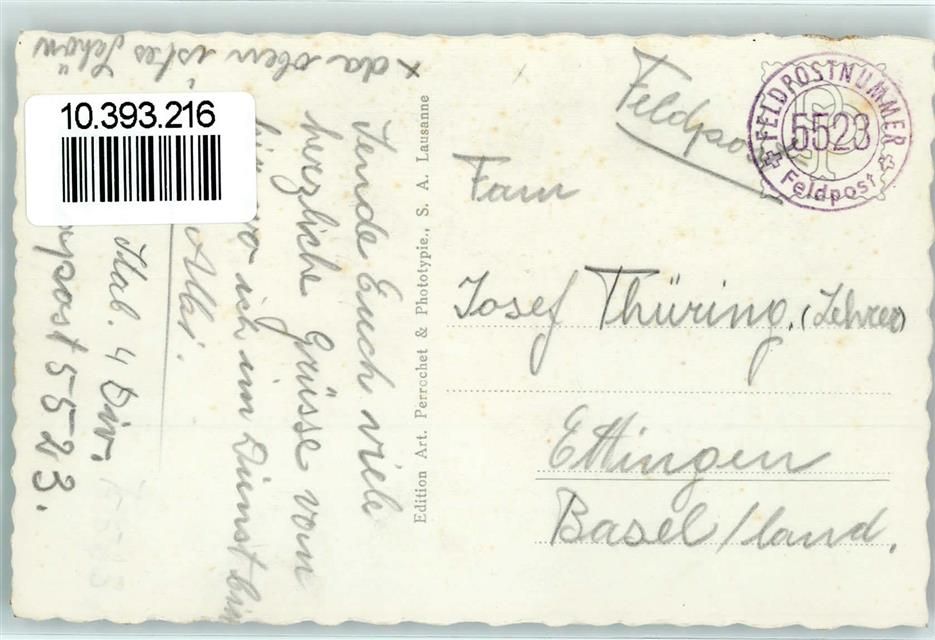 10.393.216
x da oben ist es Schön
Sende Euch viele
herzliche Grüsse vom
wo ich im Dienst bin
Albi.
Stab. 4 Div.
post 5523.
Edition Art. Perrochet & Phototypie., S. A. Lausanne
Feldpost
FELDPOSTNUMMER
5523
Feldpost
Fam
Josef Thüring. (Lehrer)
Ettingen
Basel/land.